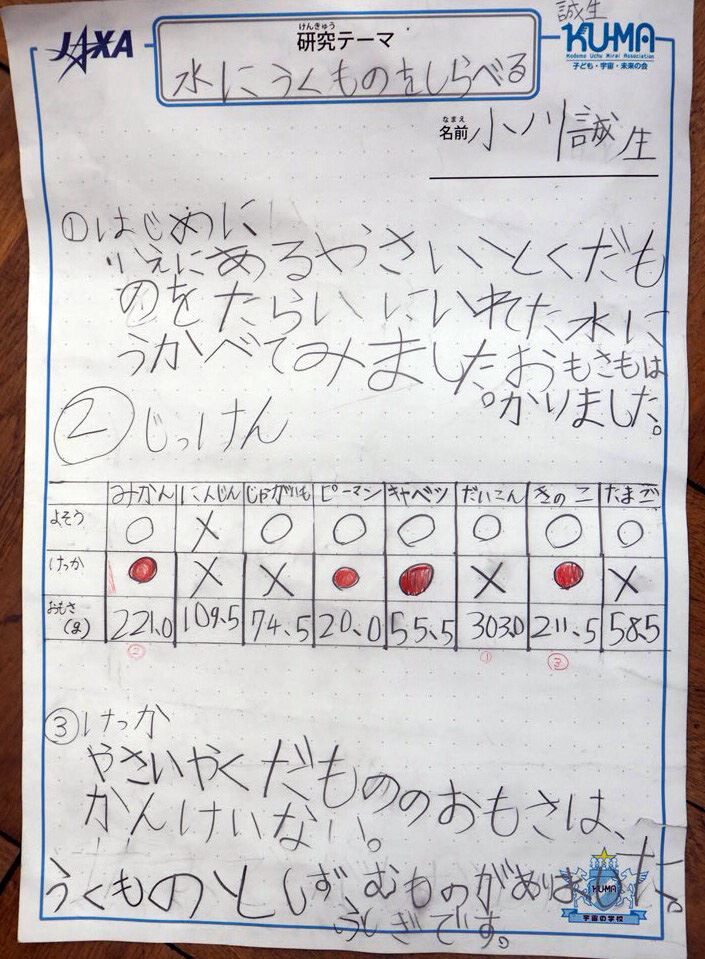 誠生
JAXA
けんきゅう
研究テーマ
KUMA
Kodomo Uchu Mirai Association
子ども・宇宙・未来の会
水にうくものをしらべる
なまえ
名前 小川誠生
①はじめに
いえにあるやさいとくだも
のをたらいにいれた水に
うかべてみました。おもさもは
かりました。
②じっけん
みかん にんじん じゃがいも ピーマン キャベツ だいこん きのこ たまご
よそう ○ × ○ ○ ○ ○ ○ ○
けっか ● × × ● ● × ● ×
おもさ(g) 221.0 109.5 74.5 20.0 55.5 303.0 211.5 58.5
② ① ③
③けっか
やさいやくだもののおもさは、
かんけいない。
うくものとしずむものがありました。
ふしぎです。
KUMA
宇宙の学校